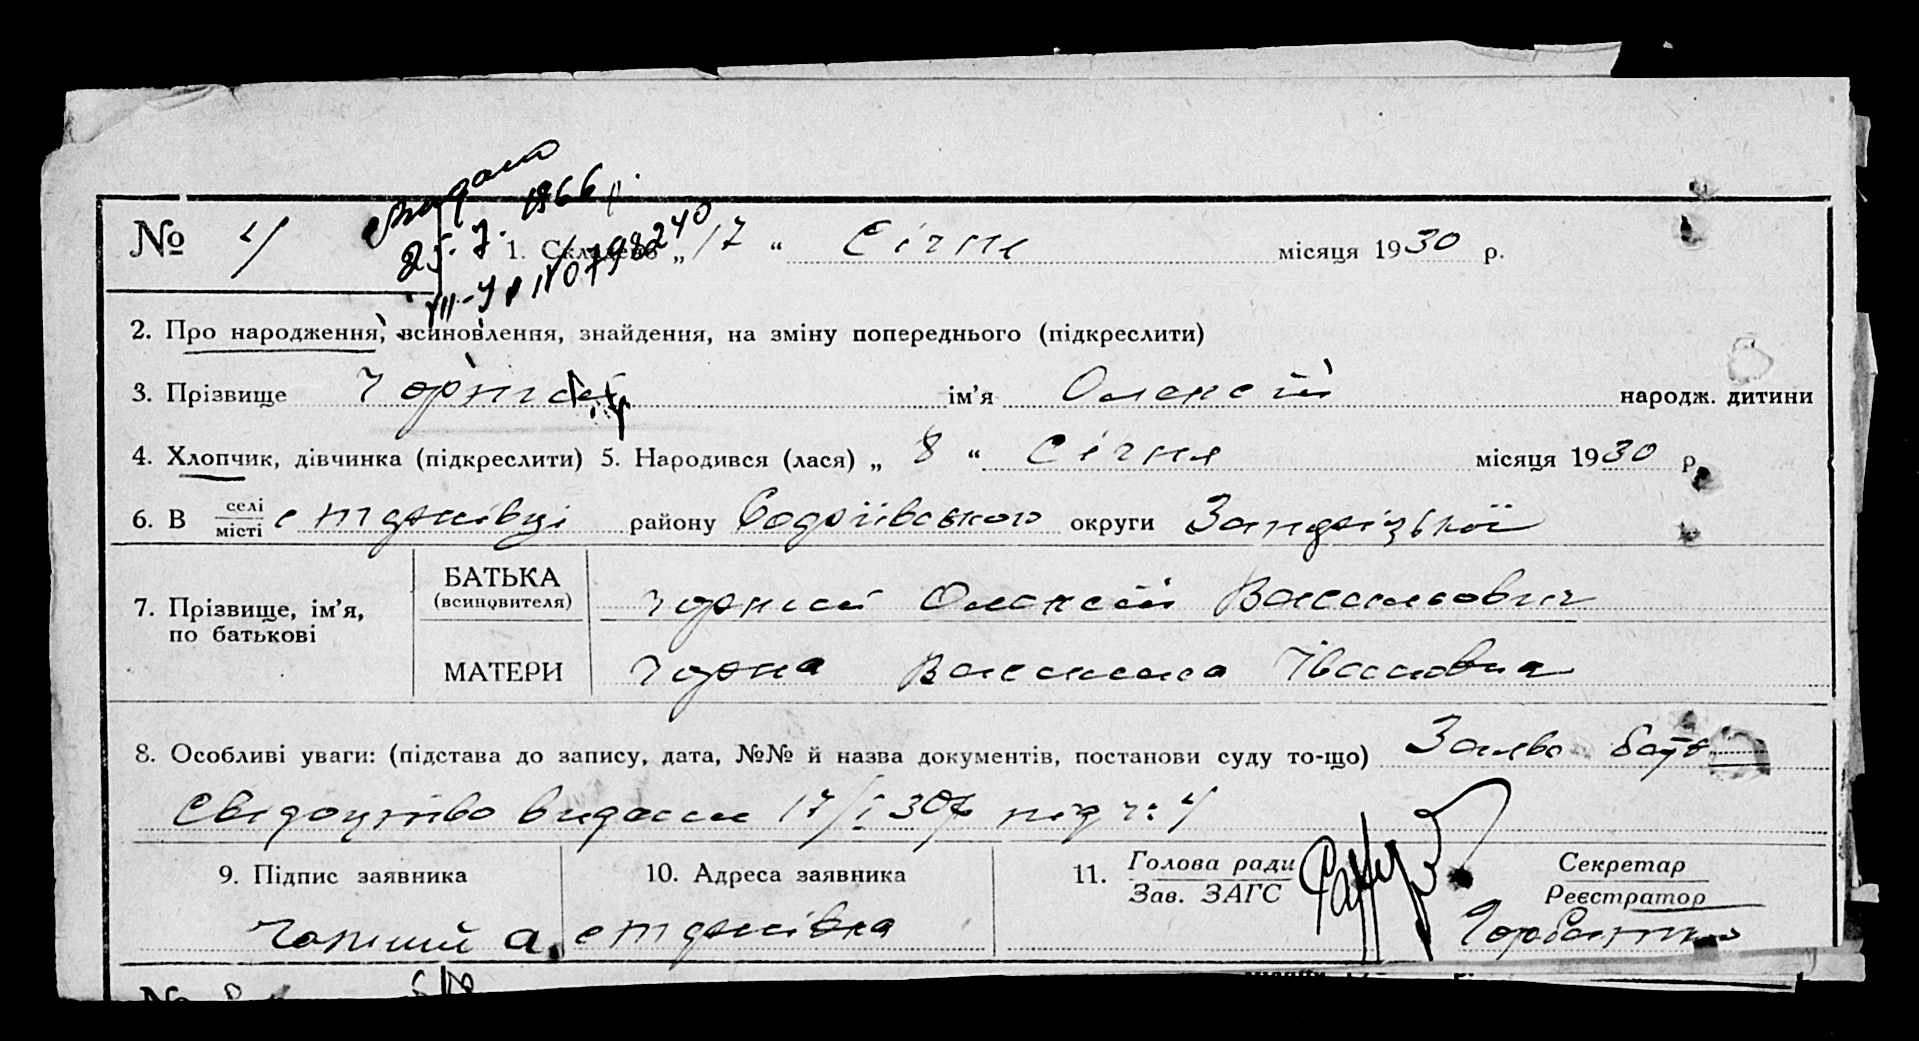 № 4
1. Складено „ 17 “ Січня місяця 1930 р.
2. Про народження, всиновлення, знайдення, на зміну попереднього (підкреслити)
3. Прізвище Чорний ім’я Олексій народж. дитини
4. Хлопчик, дівчинка (підкреслити) 5. Народився (лася) „ 8 “ Січня місяця 1930 р.
6. В селі
місті району округи Запорізької
7. Прізвище, ім’я,
по батькові
БАТЬКА
(всиновителя)
Чорний Олексій Васильович
МАТЕРИ Чорна Василина Івановна
8. Особливі уваги: (підстава до запису, дата, №№ й назва документів, постанови суду то-що) Заява бать
Свідоцтво видане 17/I 30р під ч: 4
9. Підпис заявника 10. Адреса заявника 11. Голова ради
Зав. ЗАГС
Секретар
Реєстратор
Чорний О.